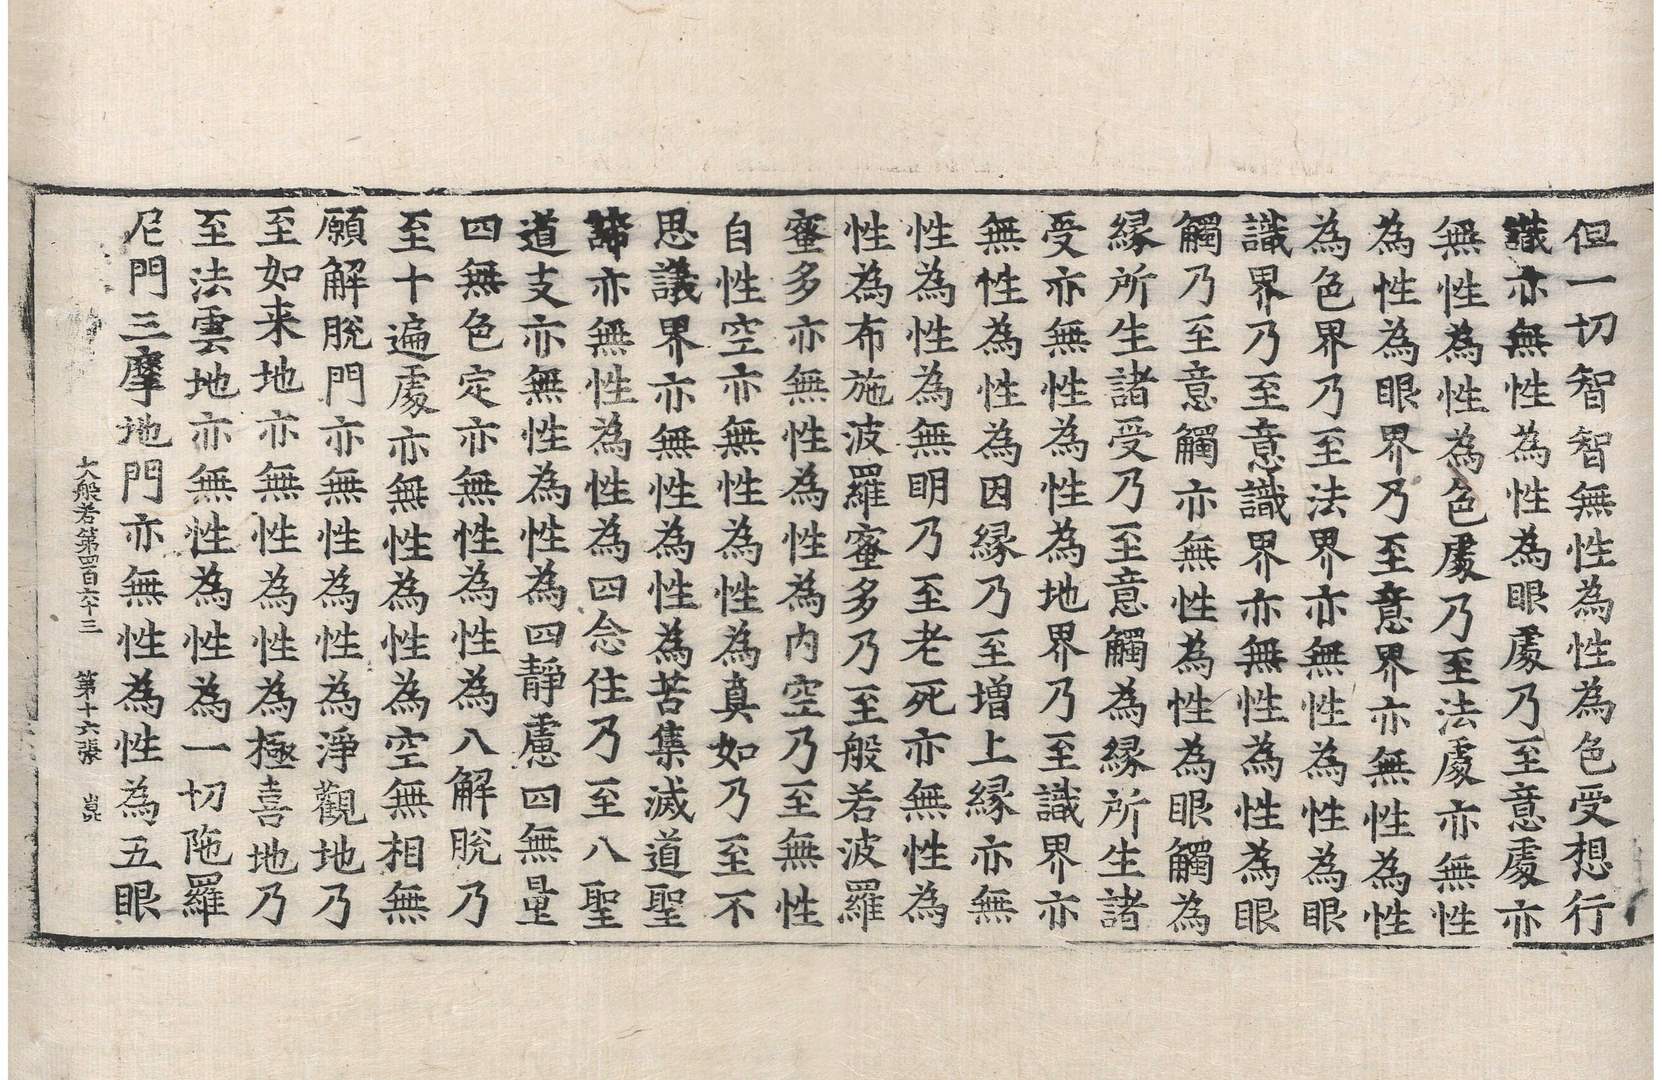 但一切智智無性為性為色受想行
識亦無性為性為眼處乃至意處亦
無性為性為色處乃至法處亦無性
為性為眼界乃至意界亦無性為性
為色界乃至法界亦無性為性為眼
識界乃至意識界亦無性為性為眼
觸乃至意觸亦無性為性為眼觸為
縁所生諸受乃至意觸為縁所生諸
受亦無性為性為地界乃至識界亦
無性為性為因縁乃至增上縁亦無
性為性為無明乃至老死亦無性為
性為布施波羅蜜多乃至般若波羅
蜜多亦無性為性為內空乃至無性
自性空亦無性為性為真如乃至不
思議界亦無性為性為苦集滅道聖
諦亦無性為性為四念住乃至八聖
道支亦無性為性為四靜慮四無量
四無色定亦無性為性為八解脫乃
至十遍處亦無性為性為空無相無
願解脫門亦無性為性為淨觀地乃
至如来地亦無性為性為極喜地乃
至法雲地亦無性為性為一切陁羅
尼門三摩地門亦無性為性為五眼
大般若第四百六十三 第十六張 崑